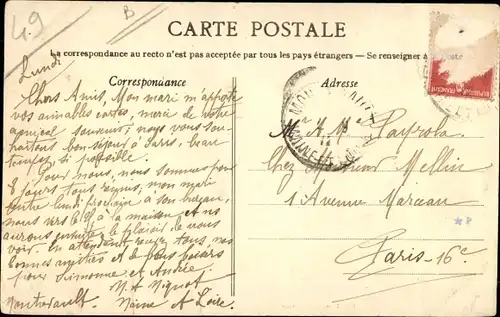 49
B
CARTE POSTALE
La correspondance au recto n'est pas acceptée par tous les pays étrangers — Se renseigner à
Correspondance
Adresse
Lundi
Chers Amis, Mon mari m'apporte
vos aimables cartes, merci de votre
amical souvenir, nous vous sou-
haitons bon séjour à Paris, beau
temps si possible.
Pour nous, nous sommes pour
8 jours tous
lundi prochain à son bureau,
nous vers le à la maison et ns
aurons ensuite le plaisir de vous
voir, en attendant recevez tous nos
bonnes amitiés et de bons baisers
pour Simonne et Andrée.
M. A. Mignot
Montrevault. Maine et Loire.
Mr & Me Payrola
Chez Monsieur Mellin
1 Avenue Marceau
Paris-16e
*8
REPUBLIQUE FRANÇAISE